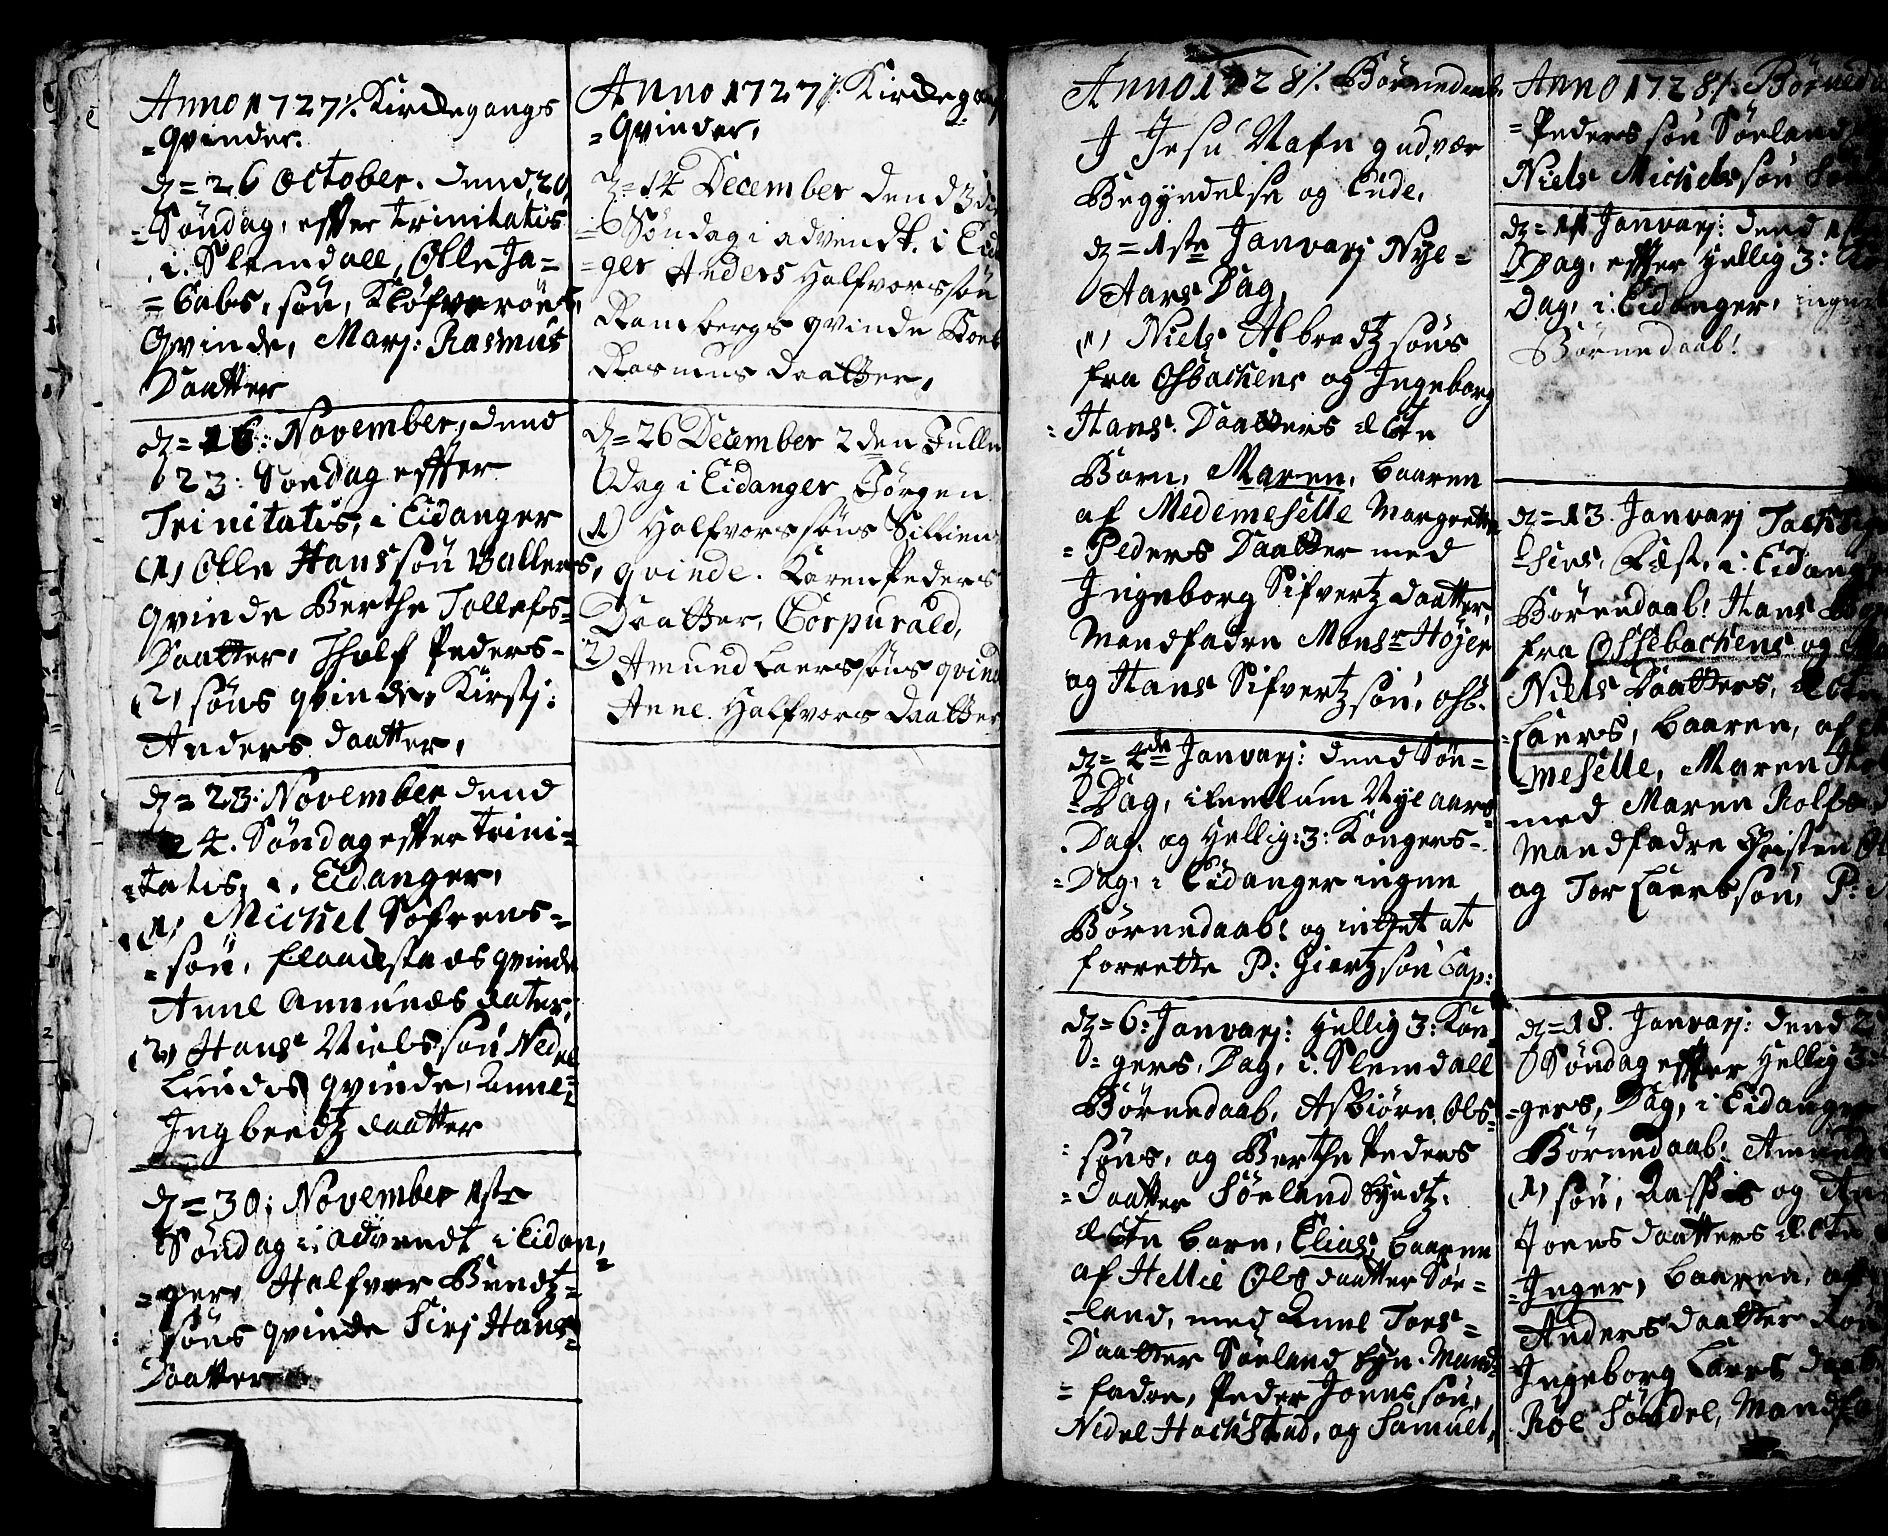 Anno 1727/: Kirckegangs
=Qvinder.
dz=26 October. dend 20
=Søndag, effter trinitatis
i. Slemdall, Olle Ja=
=cobs, søn, Kløfverøes,
Qvinde, Marj: Rasmus
Daatter
dz=16: November, dend
23: Søndag effter
Trinitatis, i Eidanger
(1) Olle Hanssøn Vallers,
qvinde Berthe Tollefs=
Daatter, Tholf Peders=
(2) søns qvinde, Kirstj:
Anders daatter,
dz=23: November dend
24. Søndag effter trini=
=tatis, i, Eidanger,
(1) Michel Søfrens=
=søn, qvinde
Anne Amunds dater,
(2) Hans Nielssøn Nedre
Lundes qvinde, Anne=
Ingbredtz daatter
dz=30: November 1ste
Søndag i: advendt i Eidan,
=ger, Halfver Bendtz=
søns qvinde Sirj Hans=
Daatter
Anno 1727/: Kirckegang
=Qvinder,
dz=14 December dend 3die
=Søndag i advendt. i Eid
=ger Anders Halfvorssøn
Rambergs qvinde
Rasmus daatter,
dz=26 December 2den Julle
Dag i Eidanger Jørgen
1) Halfvorssøns Sillien
qvinde. Karen Peders
Daatter, Corpurald,
2) Amund Laerssøns qvind
Anne. Halfvors daatter
Anno 1728/. Børnedaab
J Jesu Nafn gud, vær
Begyndelse og Ende,
dz=1ste Janvarj Nye=
Aars Dag,
(1) Niels Albredtz søns
fra Osbachens og Ingeborg
=Hans. Daatters ecte
Barn, Maren, baaren
af Medemeselle Margrette
=Peders Daatter med
Ingeborg Sifvertz daatter,
Mandfadre Monsr Höjer
og Hans Sifvertz søn, Osb.
dz=4de Janvarj: dend Søn=
=Dag, imellum Nye aars
Dag, og Hellig: 3: Kongers=
=Dag, i Eidanger ingen
Børnedaab! og inttet at
forrette P: Giertz søn Cap:
dz=6: Janvarj: Hellig 3: Kon
=gers, Dag, i. Slemdall
Børnedaab, Asbiørn, Ols=
=søns, og Berthe Peders
=daatter Sørland
ecte barn, Elias, baaren
af Hellie Ols daatter Sør=
=land, med Anne Tors=
Daatter Sørland Mand=
=fadre, Peder Jonnssøn,
Nedre Hachstad, og Samuel,
Anno 1728/: Børned
=Peders søn Sørland
Niels Michels søn
dz=11 Janvarj: dend 1ste
Dag, effter Hellig 3:
Dag, i. Eidanger, ingen
Børnedaab!
dz=13. Janvarj
Fest, i: Eidanger
Børnedaab! Hans
fra Ossebachens og
Niels Daatters, ecte
=Laers, baaren, af
=meselle, Maren
med Maren Rolfs
Mandfadre Christen
og Tor Laerssøn, P:
dz=18. Janvarj: dend 2
Søndag effter Hellig 3
=gers, Dag, i Eidanger
Børnedaab! Amund
(1) søn, og
Joens daatters ecte
=Inger, baaren, af
Anders daatter
Ingeborg Laers daat
Roe Søndre, Mandfa